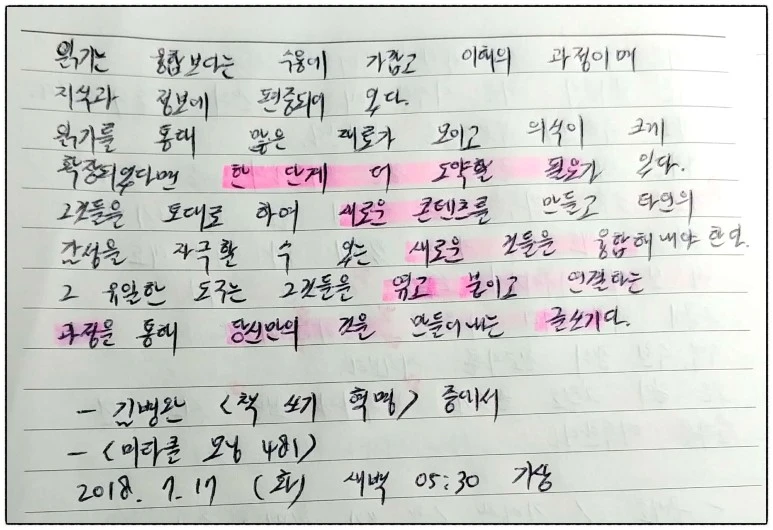 읽기는 융합보다는 수용에 가깝고 이해의 과정이며
지식과 정보에 편중되어 있다.
읽기를 통해 많은 재료가 모이고 의식이 크게
확장되었다면 한 단계 더 도약할 필요가 있다.
그것들을 토대로 하여 새로운 콘텐츠를 만들고 타인의
감성을 자극할 수 있는 새로운 것들을 융합해 내야 한다.
그 유일한 도구는 그것들을 엮고 붙이고 연결하는
과정을 통해 당신만의 것을 만들어내는 글쓰기다.
- 김병완 <책 쓰기 혁명> 중에서
- <미라클 모닝 481>
2018. 7. 17 (화) 새벽 05:30 기상